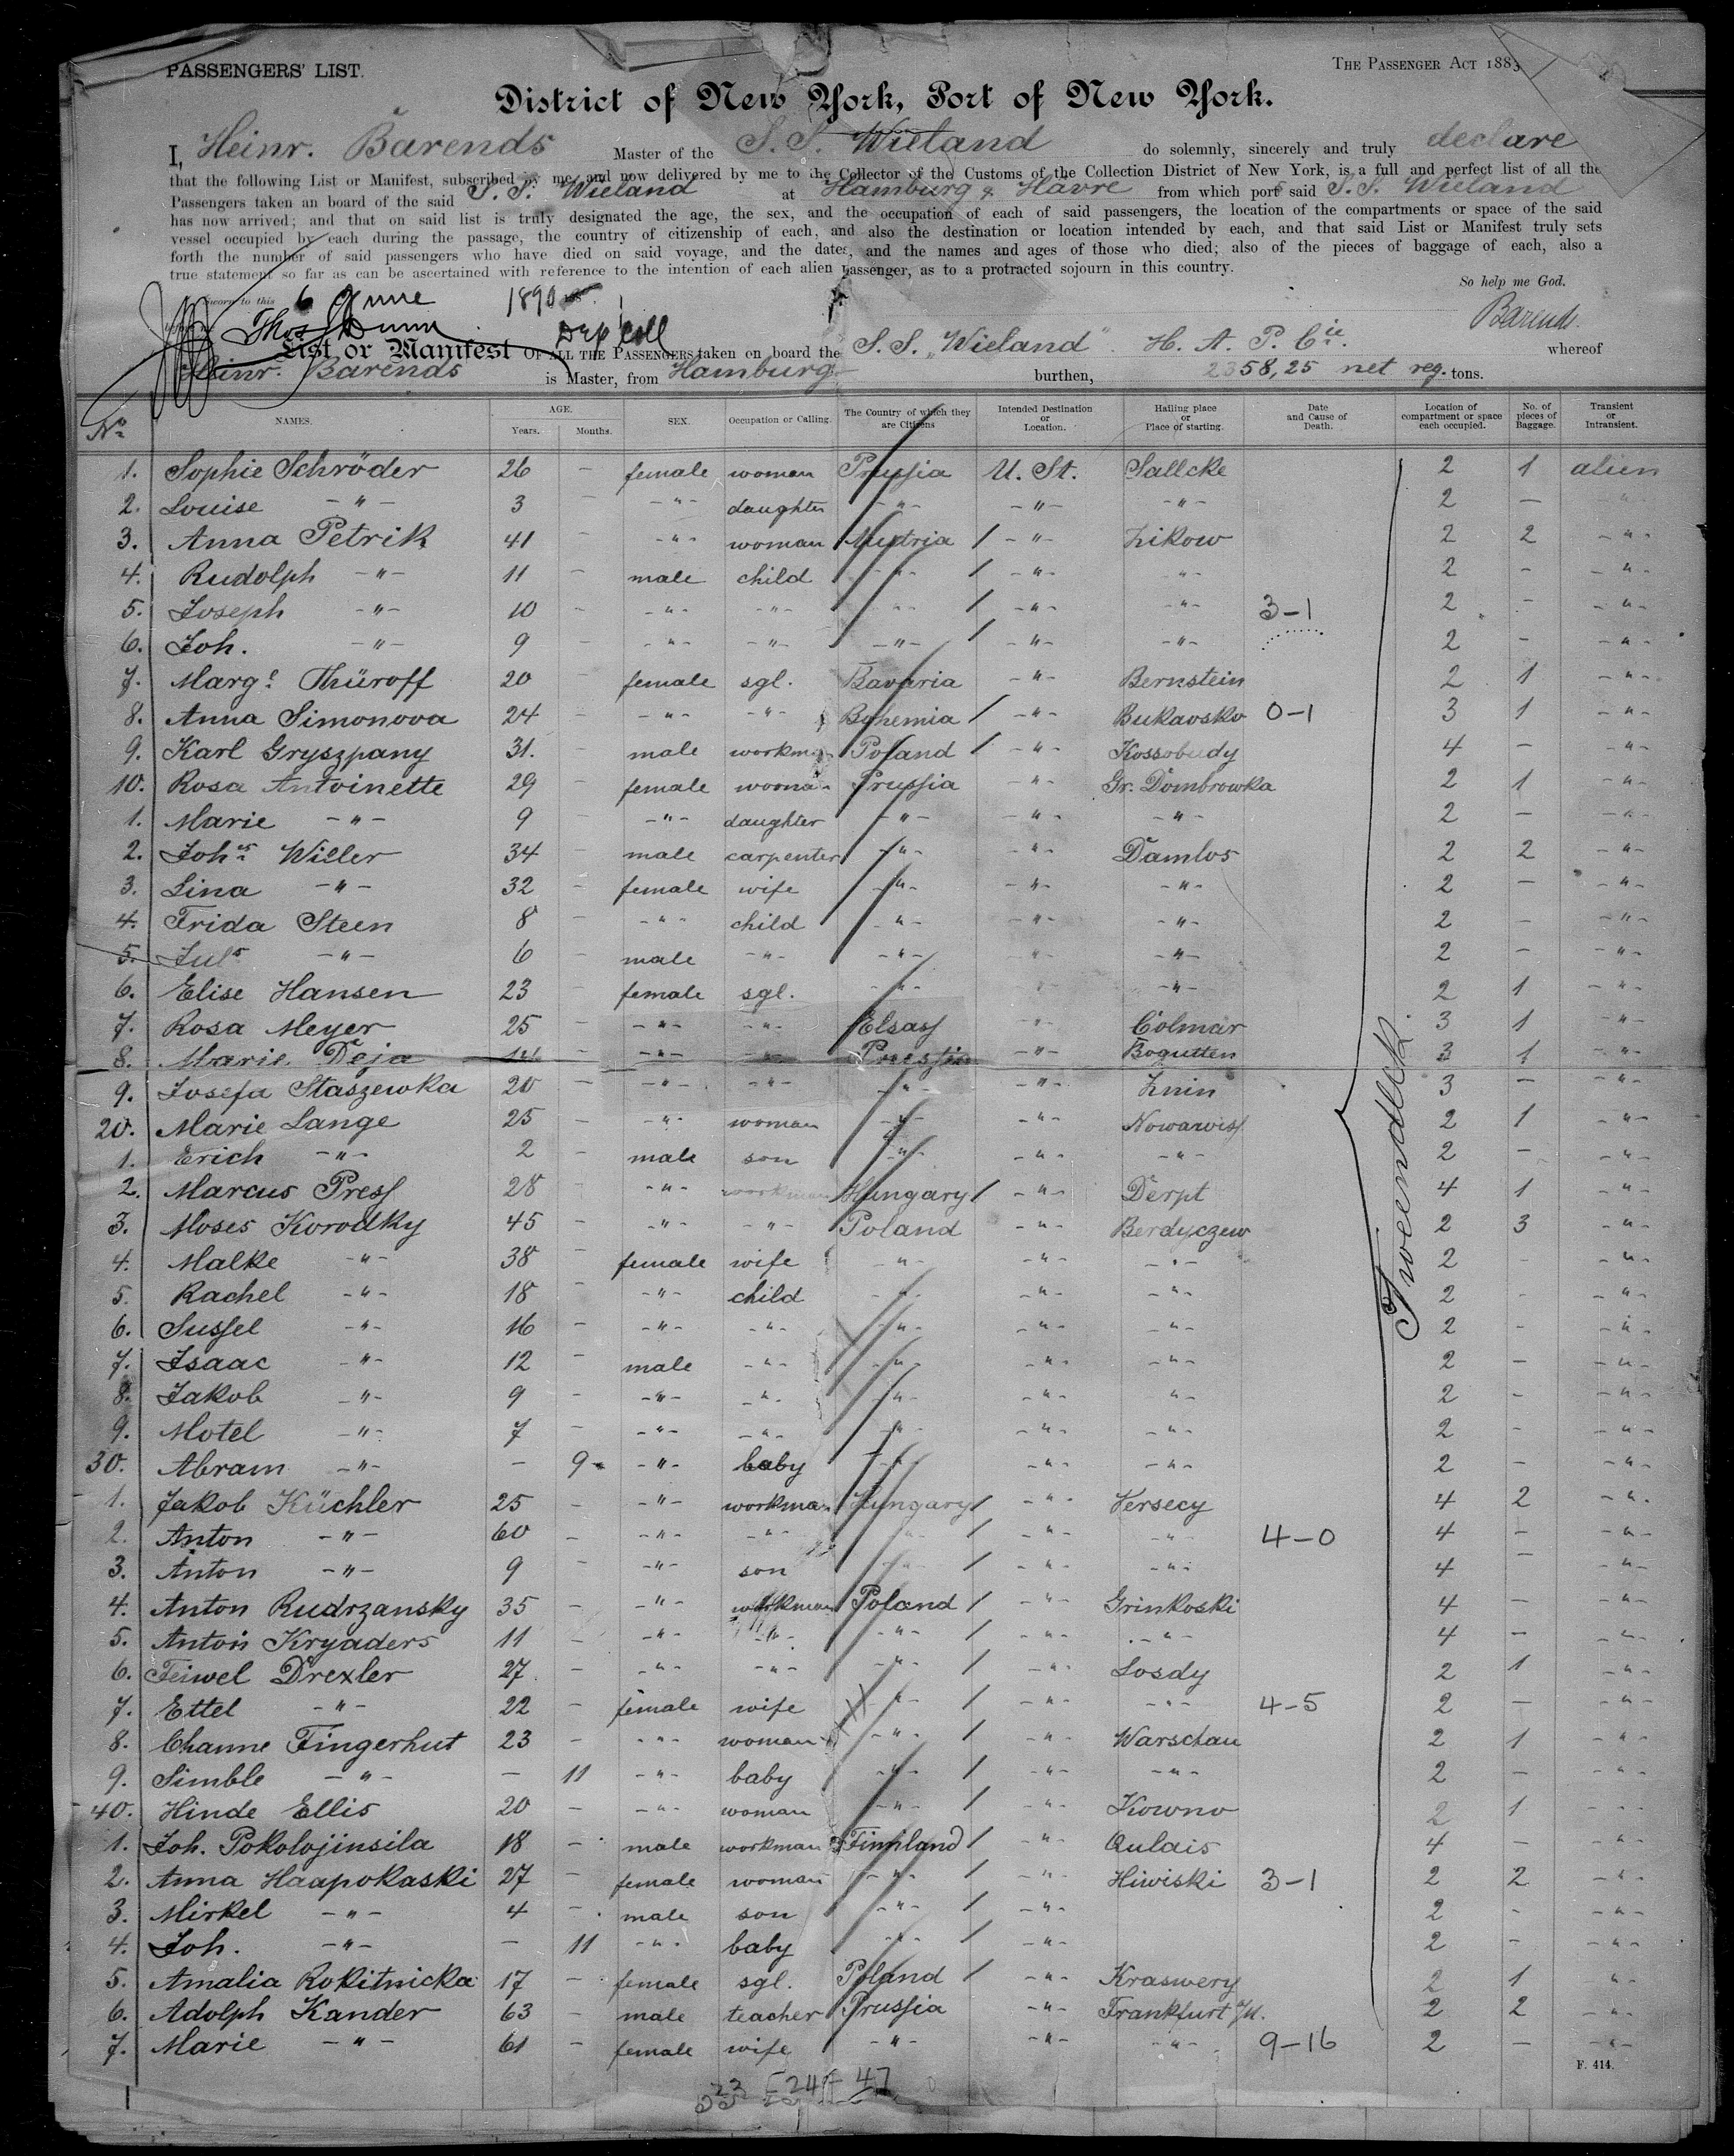 PASSENGERS' LIST.
THE PASSENGER ACT 1883
District of New York, Port of New York.
I, Heinr. Barends Master of the S. S. Wieland do solemnly, sincerely and truly declare
that the following List or Manifest, subscribed by me, and now delivered by me to the Collector of the Customs of the Collection District of New York, is a full and perfect list of all the
Passengers taken an board of the said S. S. Wieland at Hamburg & Havre from which ports said S. S. Wieland
has now arrived; and that on said list is truly designated the age, the sex, and the occupation of each of said passengers, the location of the compartments or space of the said
vessel occupied by each during the passage, the country of citizenship of each, and also the destination or location intended by each, and that said List or Manifest truly sets
forth the number of said passengers who have died on said voyage, and the dates, and the names and ages of those who died; also of the pieces of baggage of each, also a
true statement so far as can be ascertained with reference to the intention of each alien passenger, as to a protracted sojourn in this country.
So help me God.
Sworn to this 6 June 1890
Thos Dunn Dep Coll
Barends.
List or Manifest OF ALL THE PASSENGERS taken on board the S. S. "Wieland" H. A. P. Cie. whereof
Heinr. Barends is Master, from Hamburg burthen, 2358,25 net reg. tons.
No NAMES. AGE. Years. Months. SEX. Occupation or Calling. The Country of which they are Citizens Intended Destination or Location. Hailing place or Place of starting. Date and Cause of Death. Location of compartment or space each occupied. No. of pieces of Baggage. Transient or Intransient.
1. Sophie Schröder 26 – female woman Prussia U. St. Sallcke 2 1 alien
2. Louise –"– 3 – –"– daughter –"– –"– –"– 2 – –"–
3. Anna Petrik 41 – –"– woman Austria / –"– Zikow 2 2 –"–
4. Rudolph –"– 11 – male child –"– / –"– –"– 2 – –"–
5. Joseph –"– 10 – –"– –"– –"– / –"– –"– 3–1 2 – –"–
6. Joh. –"– 9 – –"– –"– –"– / –"– –"– 2 – –"–
7. Marge. Thüroff 20 – female sgl. Bavaria –"– Bernstein 2 1 –"–
8. Anna Simonova 24 – –"– –"– Bohemia / –"– Bukavsko 0–1 3 1 –"–
9. Karl Gryszpany 31. male workman Poland / –"– Kossobudy 4 – –"–
10. Rosa Antoinette 29 female woman Prussia –"– Gr. Dombrowka 2 1 –"–
1. Marie –"– 9 – –"– daughter –"– –"– –"– 2 – –"–
2. Johs Willer 34 – male carpenter –"– –"– Damlos 2 2 –"–
3. Lina –"– 32 – female wife –"– –"– –"– 2 – –"–
4. Frida Steen 8 – –"– child –"– –"– –"– 2 – –"–
5. Juls –"– 6 – male –"– –"– –"– –"– 2 – –"–
6. Elise Hansen 23 – female sgl. –"– –"– –"– 2 1 –"–
7. Rosa Meyer 25 – –"– –"– Elsass –"– Colmar 3 1 –"–
8. Marie Deja –"– –"– Prussia –"– Bogutten 3 1 –"–
9. Josefa Staszewka 20 – –"– –"– –"– –"– Znin 3 – –"–
20. Marie Lange 25 – –"– woman –"– –"– Nowawiss 2 1 –"–
1. Erich –"– 2 – male son –"– –"– –"– 2 – –"–
2. Marcus Press 28 – –"– workman Hungary / –"– Derpt 4 1 –"–
3. Moses Korodky 45 – –"– –"– Poland –"– Berdyczew 2 3 –"–
4. Malke –"– 38 – female wife –"– –"– –"– 2 – –"–
5. Rachel –"– 18 – –"– child –"– –"– –"– 2 – –"–
6. Sussel –"– 16 – –"– –"– –"– –"– –"– 2 – –"–
7. Isaac –"– 12 – male –"– –"– –"– –"– 2 – –"–
8. Jakob –"– 9 – –"– –"– –"– –"– –"– 2 – –"–
9. Motel –"– 7 – –"– –"– –"– –"– –"– 2 – –"–
30. Abram –"– – 9 –"– baby –"– –"– –"– 2 – –"–
1. Jakob Küchler 25 – –"– workman Hungary / –"– Versecy 4 2 –"–
2. Anton –"– 60 – –"– –"– –"– / –"– –"– 4–0 4 – –"–
3. Anton –"– 9 – –"– son –"– / –"– –"– 4 – –"–
4. Anton Rudrzansky 35 – –"– workman Poland / –"– Grinkoski 4 – –"–
5. Anton Kryaders 11 – –"– –"– –"– / –"– –"– 4 – –"–
6. Feiwel Drexler 27 – –"– –"– –"– / –"– Losdy 2 1 –"–
7. Ettel –"– 22 – female wife –"– / –"– –"– 4–5 2 – –"–
8. Channe Fingerhut 23 – –"– woman –"– / –"– Warschau 2 1 –"–
9. Simble –"– – 11 –"– baby –"– / –"– –"– 2 – –"–
40. Hinde Ellis 20 – –"– woman –"– / –"– Kowno 2 1 –"–
1. Joh. Pokolojinsila 18 – male workman Finnland / –"– Qulais 4 – –"–
2. Anna Haapokaski 27 – female woman –"– / –"– Hiwiski 3–1 2 2 –"–
3. Mirkel –"– 4 – male son –"– / –"– 2 – –"–
4. Joh. –"– – 11 –"– baby –"– / –"– 2 – –"–
5. Amalia Rokitnicka 17 – female sgl. Poland / –"– Kraswery 2 1 –"–
6. Adolph Kander 63 – male teacher Prussia –"– Frankfurt a/M. 2 2 –"–
7. Marie –"– 61 – female wife –"– –"– –"– 9–16 2 – –"–
Tweendeck.
F. 414.
24 47